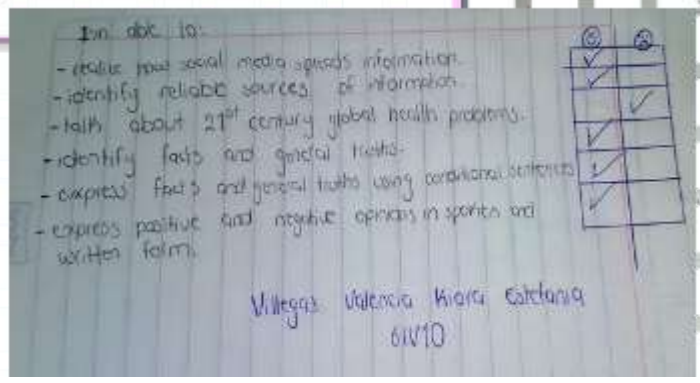 I'm able to:
- realize how social media spreads information.
- identify reliable sources of information.
- talk about 21st century global health problems.
- identify facts and general truths.
- express facts and general truths using conditional sentences
- express positive and negative opinions in spoken and
written form.
Villegas Valencia Kiara Estefania
6IV10